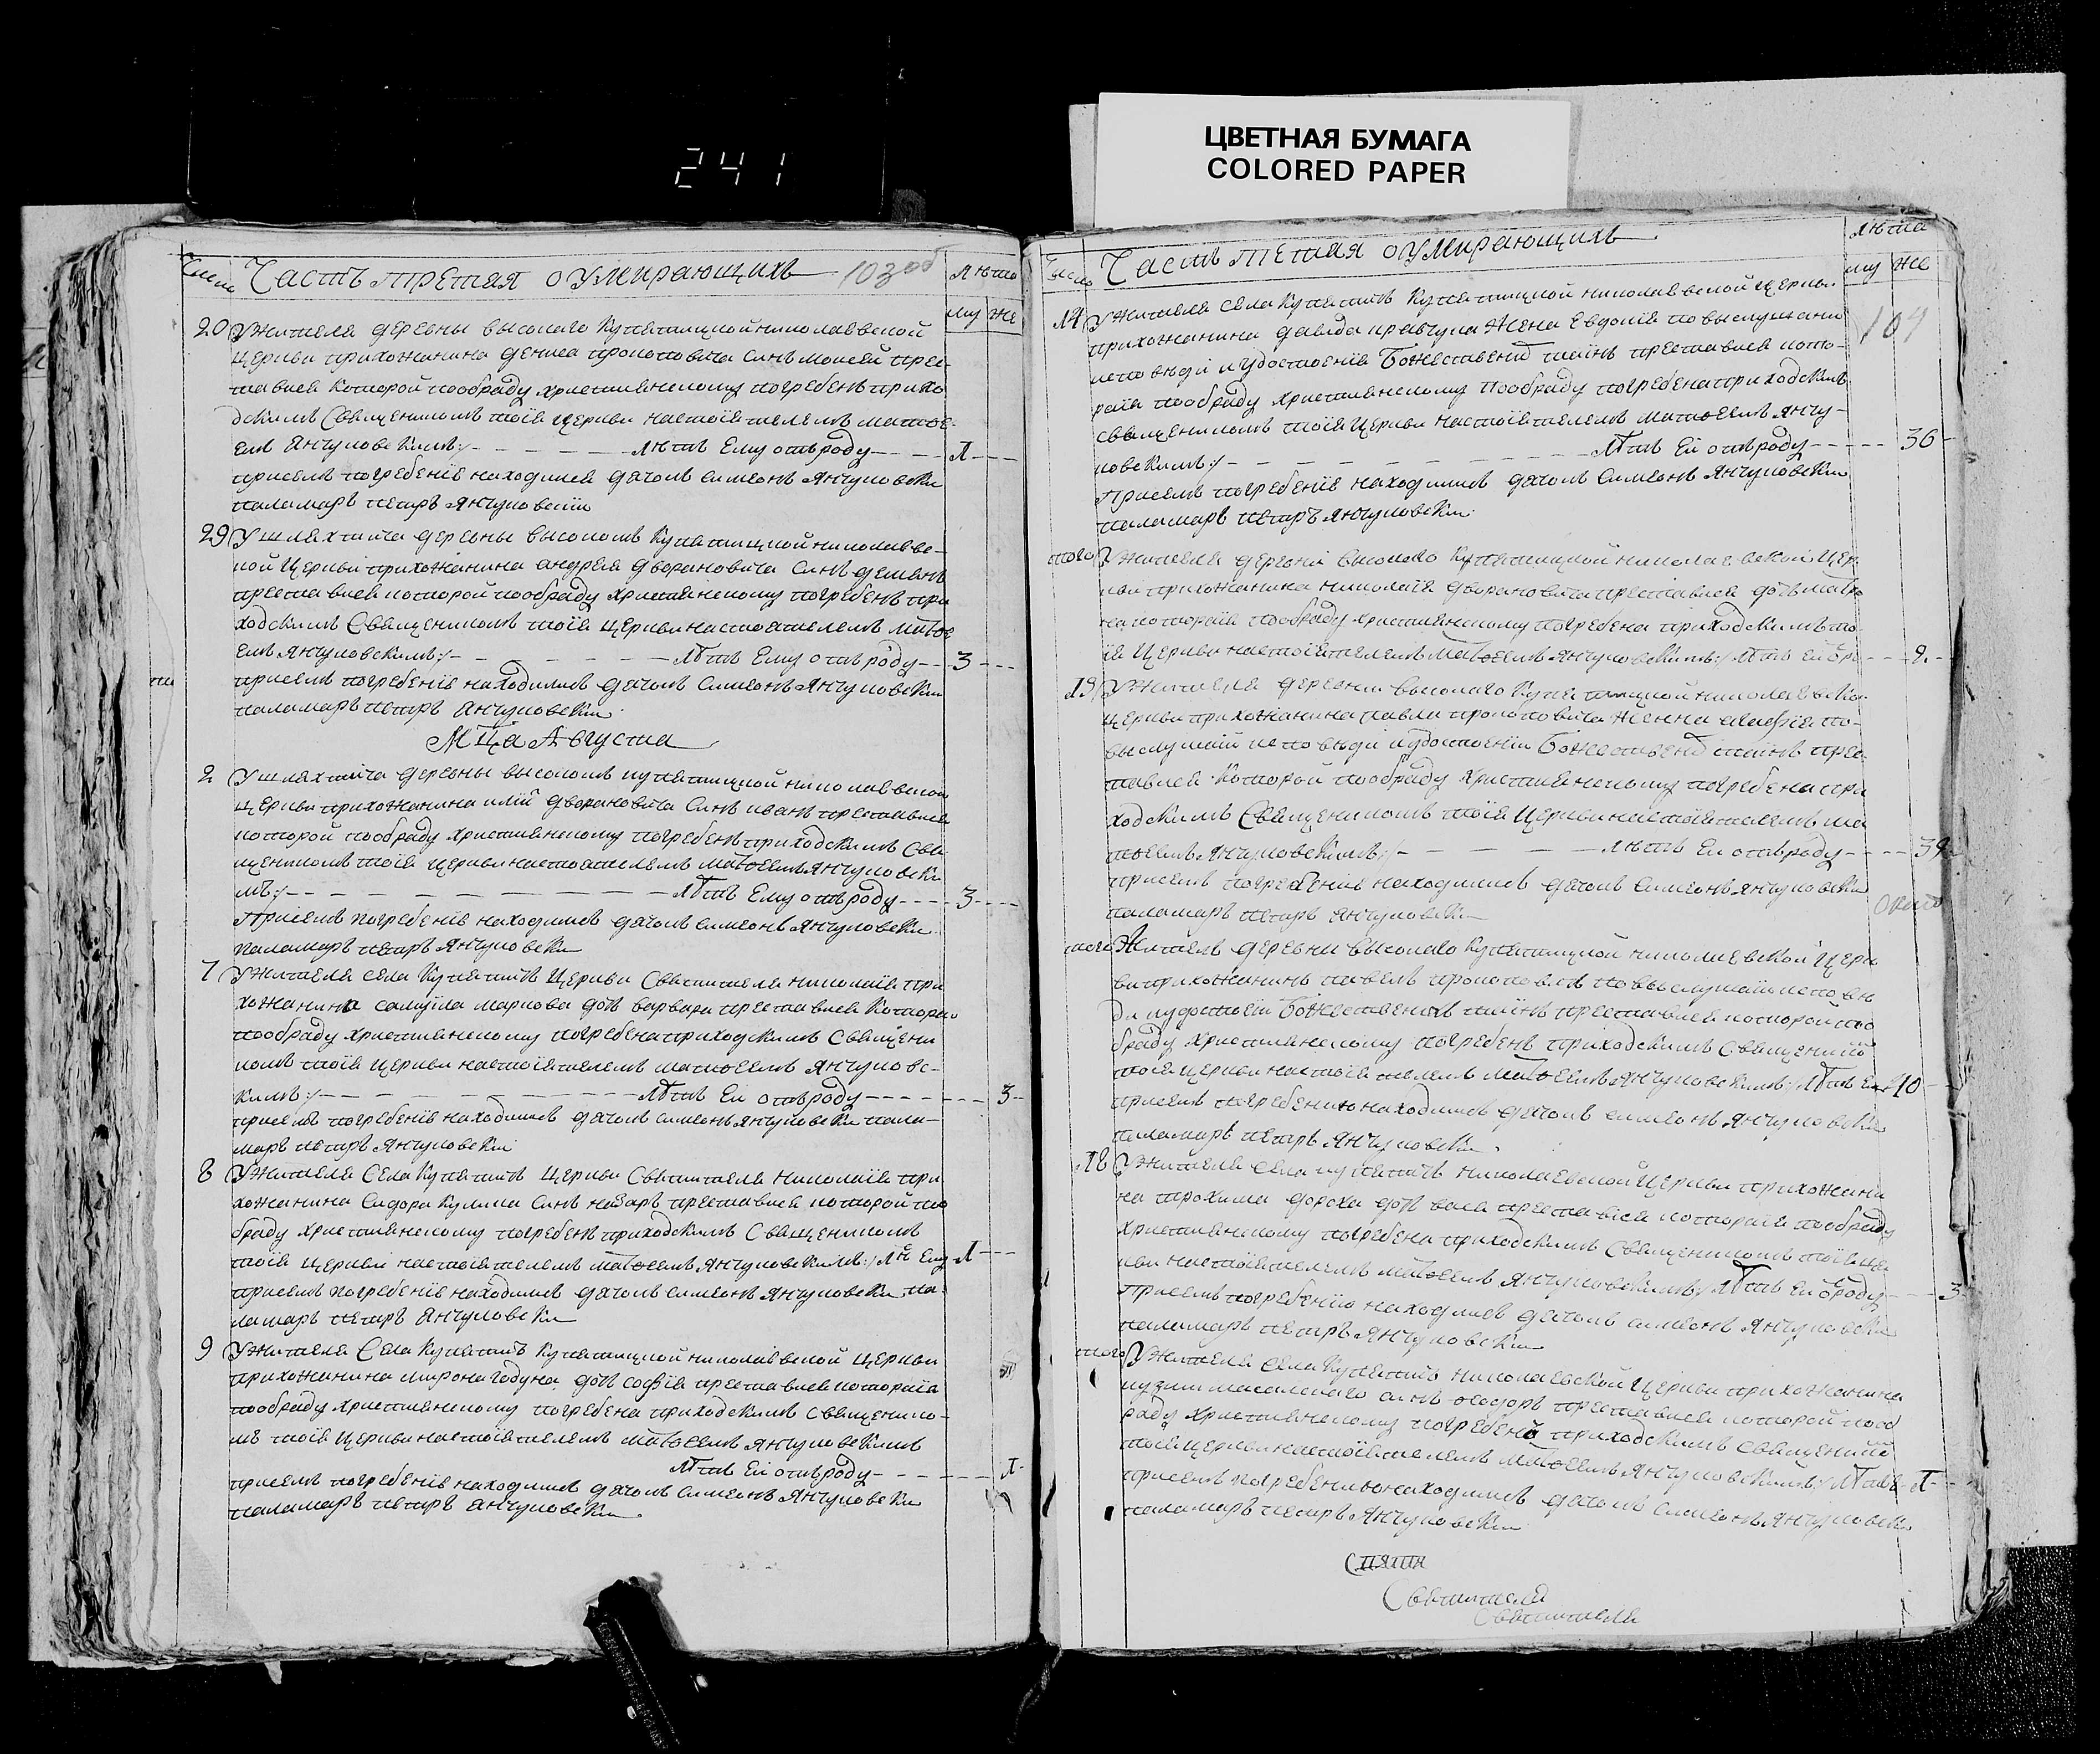 241
ЦВЕТНАЯ БУМАГА
COLORED PAPER
Число Часть третая о умирающихъ 103 об Лѣта
му же
20 У Жителя деревны высокаго Купятицкой николаевской
Церкви прихожанина дениса прокоповича Синъ моисей прес-
тавися которой пообраду християнскому погребенъ прихо
дскимъ Священикомъ тоія церкви настоятелемъ матѳе-
емъ Янчуковскимъ:/ Лѣтъ Ему отъ роду 1
присемъ погребеніе находился дячокъ симеонъ Янчуковски
паламаръ петръ Янчуковскіи
29 У шляхтича деревны высокомъ Купятицкой николаевс-
кой Церкви прихожанина андрея дворановича Синъ демянъ
преставися которой пообраду християнскому погребенъ при
ходскимъ Священикомъ тоія церкви настоятелемъ матѳе
емъ Янчуковскимъ:/ Лѣтъ Ему отъ роду 3
присемъ погребеніе находились дячокъ симеонъ Янчуковски
паламаръ петръ Янчуковски
Мца Августа
2 У шляхтича деревны высокомъ купятицкой николаевской
церкви прихожанина иліи дворановича Синъ иванъ преставися
которой пообраду християнскому погребенъ приходскимъ Свя
щеникомъ тоія церкви настоятелемъ матѳеемъ Янчуковски
мъ:/ Лѣтъ Ему отъ роду 3
Присемъ погребеніе находились дячокъ симеонъ Янчуковски
паламаръ петръ Янчуковски
7 У Жителя села Купятичъ Церкви Святителя николаія при
хожанина самуила маркова дочь варвара преставися котора
пообраду християнскому погребена приходскимъ Священи
комъ тоія церкви настоятелемъ матѳеемъ Янчуковс-
кимъ:/ Лѣтъ Еи отъ роду 3
присемъ погребеніе находились дячокъ симеонъ янчуковски пала-
маръ петръ Янчуковски
8 У Жителя Села Купятичъ церкви Святителя николаія при
хожанина Сидора Кулика Синъ назаръ преставися которой поо
браду християнскому погребенъ приходскимъ Священикомъ
тоія церкви настоятелемъ матѳеемъ Янчуковскимъ:/ Лѣ Ему 1
присемъ погребеніе находились дячокъ симеонъ Янчуковски па-
ламаръ петръ Янчуковски
9 У Жителя Села Купятичъ Купятицкой николаевской церкви
прихожанина мирона годуна дочь софія преставися котораія
пообраду християнскому погребена приходскимъ священико-
мъ тоія церкви настоятелемъ матѳеемъ Янчуковскимъ
Лѣтъ Еи отъ роду 1
присемъ погребеніе находились дячокъ симеонъ Янчуковски
паламаръ петръ Янчуковски
Число Часть тетая о умирающихъ Лѣта
му же
104
14 У Жителя села Купятичъ Купятицкой николаевской церкви
прихожанина давида кравчука Жена Евдокія по выслушани
исповѣди и удостоенія Божественъ таинъ преставися кото-
раія пообраду християнскому погребена приходскимъ
священикомъ тоія Церкви настоятелемъ матѳеемъ Янчу-
ковскимъ:/ Лѣтъ Еи отъ роду 36
Присемъ погребеніе находились дячокъ Симеонъ Янчуковски
паламаръ петръ Янчуковски
того У Жителя деревни высокаго Купятицкой николаевской Цер
кви прихожанина николаія дворановича преставися дочь матро
на котораія пообраду християнскому погребена приходскимъ то
ія Церкви настоятелемъ матѳеемъ Янчуковскимъ:/ Лѣтъ Еи 2
15 У Жителя деревни высокаго Купятицкой николаевско
Церкви прихожанина павла прокоповича женна по-
выслушаіи исповѣди и удостоеніи Божественъ таинъ прес-
тавися которой пообраду християнскому погребена при
ходскимъ Священикомъ тоія Церкви настоятелемъ ма
тѳеемъ Янчуковскимъ:/ Лѣтъ Еи отъ роду 39
присемъ погребеніе находились дячокъ симеонъ янчуковски
паламаръ петръ Янчуковски
того Жителъ деревни высокаго Купятицкой николаевской Церк
ви прихожанинъ павелъ прокоповичъ повыслушаіи исповѣ
ди и удостоеіи Божественихъ таинъ преставися которой поо
браду християнскому погребенъ приходскимъ Священико
тоія церкви настоятелемъ матѳеемъ Янчуковскимъ:/ Лѣтъ 40
присемъ погребению находились дячокъ симеонъ янчуковски
паламаръ петръ Янчуковски
18 У Жителя села купятичъ николаевской Церкви прихожани
на трохима дороха дочь васа преставися котораія пообраду
християнскому погребена приходскимъ Священикомъ тоія це
кви настоятелемъ матѳеемъ Янчуковскимъ:/ Лѣтъ Еи ѿроду 3
присемъ погребению находился дячокъ симеонъ Янчуковски
паламаръ петръ Янчуковски
того У Жителя села Купятичъ николаевской Церкви прихожанина
синъ ѳеодоръ преставися которой пооб
раду християнскому погребенъ приходскимъ священико
тоія церкви настоятелемъ матѳеемъ Янчуковскимъ:/ Лѣтъ 1
присемъ погребению находились дячокъ симеонъ Янчуковски
паламаръ петръ Янчуковски
Святителя
Святителя